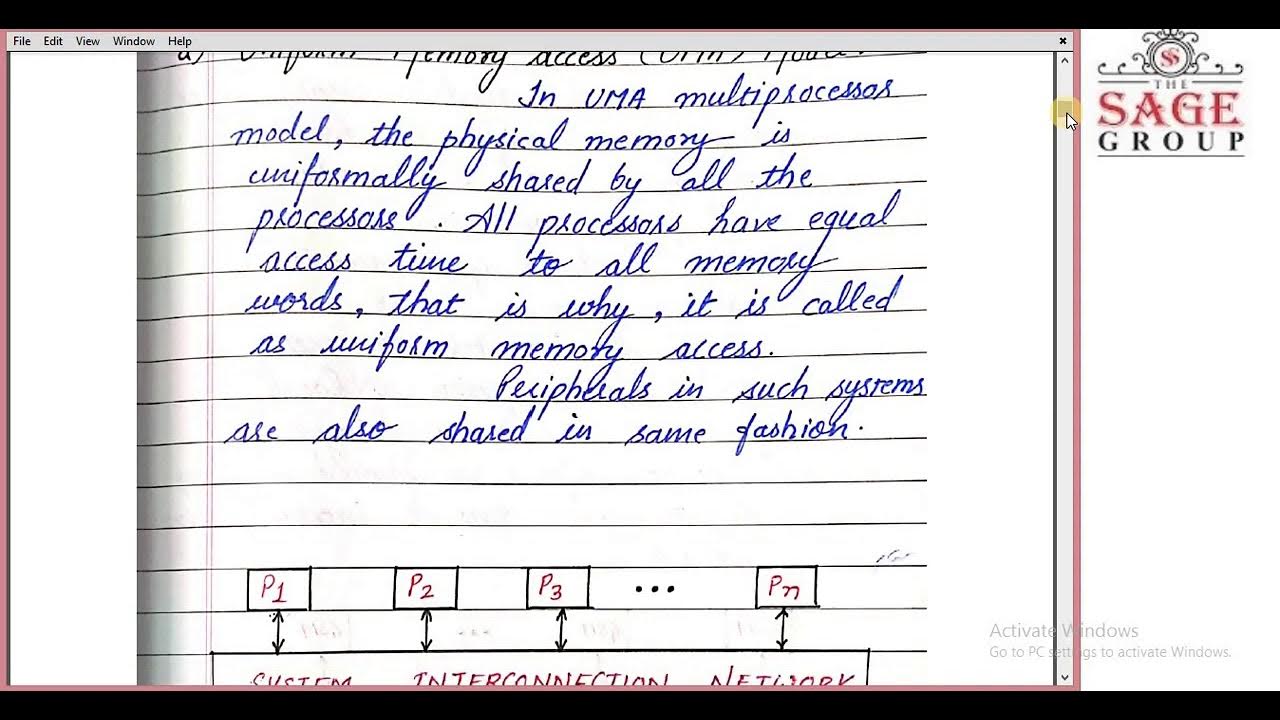 File Edit View Window Help
a) Uniform Memory access (UMA) Model:
In UMA multiprocessor
model, the physical memory is
uniformally shared by all the
processors. All processors have equal
access time to all memory
words, that is why, it is called
as uniform memory access.
Peripherals in such systems
are also shared in same fashion.
P1 P2 P3 ... Pn
SYSTEM INTERCONNECTION NETWORK
SS
THE
SAGE
GROUP
Activate Windows
Go to PC settings to activate Windows.